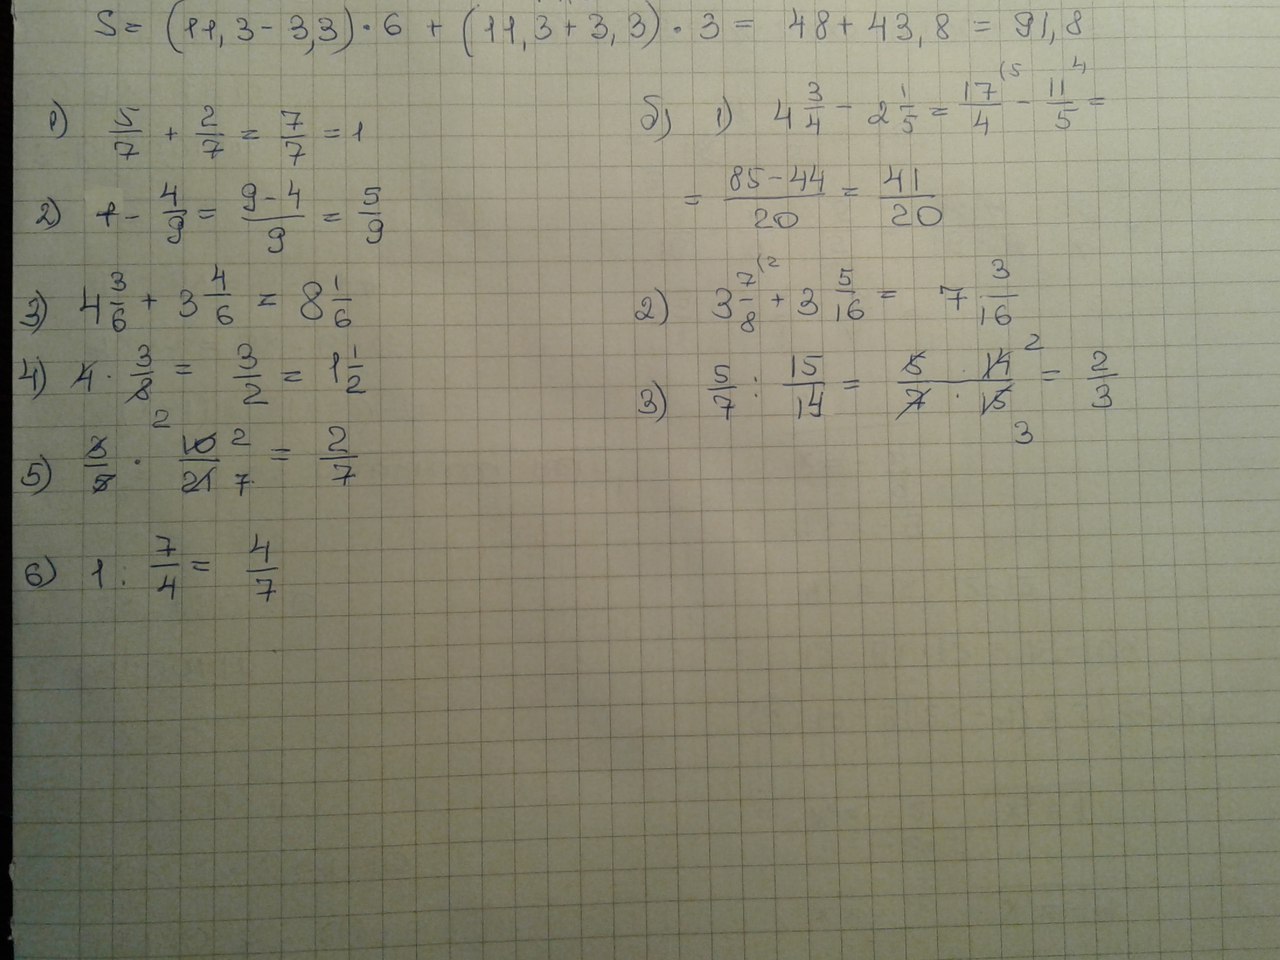 S = (11,3 - 3,3) · 6 + (11,3 + 3,3) · 3 = 48 + 43,8 = 91,8
1) 5/7 + 2/7 = 7/7 = 1
2) 1 - 4/9 = (9-4)/9 = 5/9
3) 4 3/6 + 3 4/6 = 8 1/6
4) 4 · 3/8 = 3/2 = 1 1/2
5) 3/5 · 2 10/21 2 7 = 2/7
6) 1 : 7/4 = 4/7
б) 1) 4 3/4 - 2 1/5 = 17/4 (5 - 11/5 4 =
= (85-44)/20 = 41/20
2) 3 7/8 (2 + 3 5/16 = 7 3/16
3) 5/7 : 15/14 = (5 · 14 2)/(7 · 15 3) = 2/3